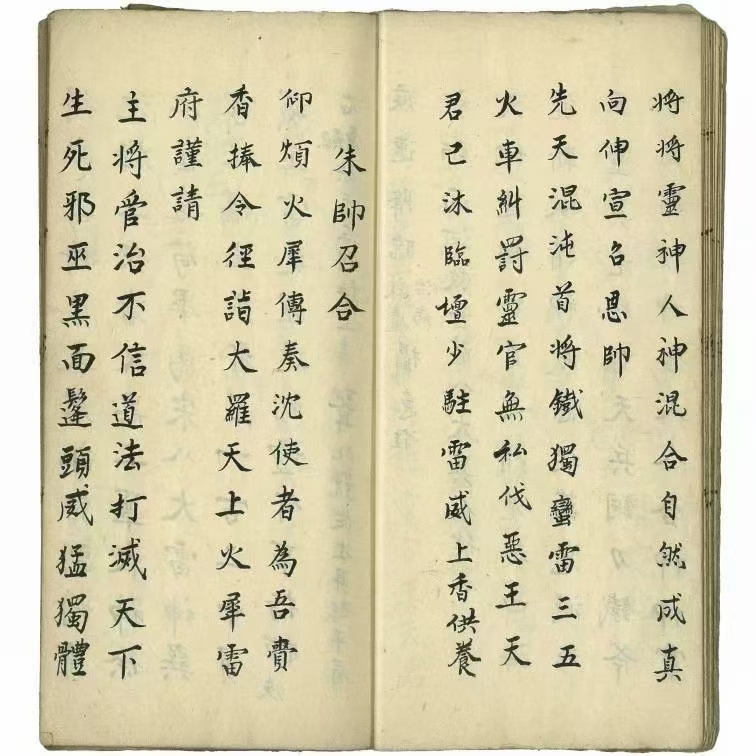 將將靈神人神混合自然成真
向伸宣召恩帥
先天混沌首將鐵獨蠻雷三五
火車糾罰靈官無私伐惡王天
君已沐臨壇少駐雷威上香供養
朱帥召合
仰煩火犀傳奏沈使者為吾賫
香捧令徑詣大羅天上火犀雷
府謹請
主將管治不信道法打滅天下
生死邪巫黑面鬔頭威猛獨體